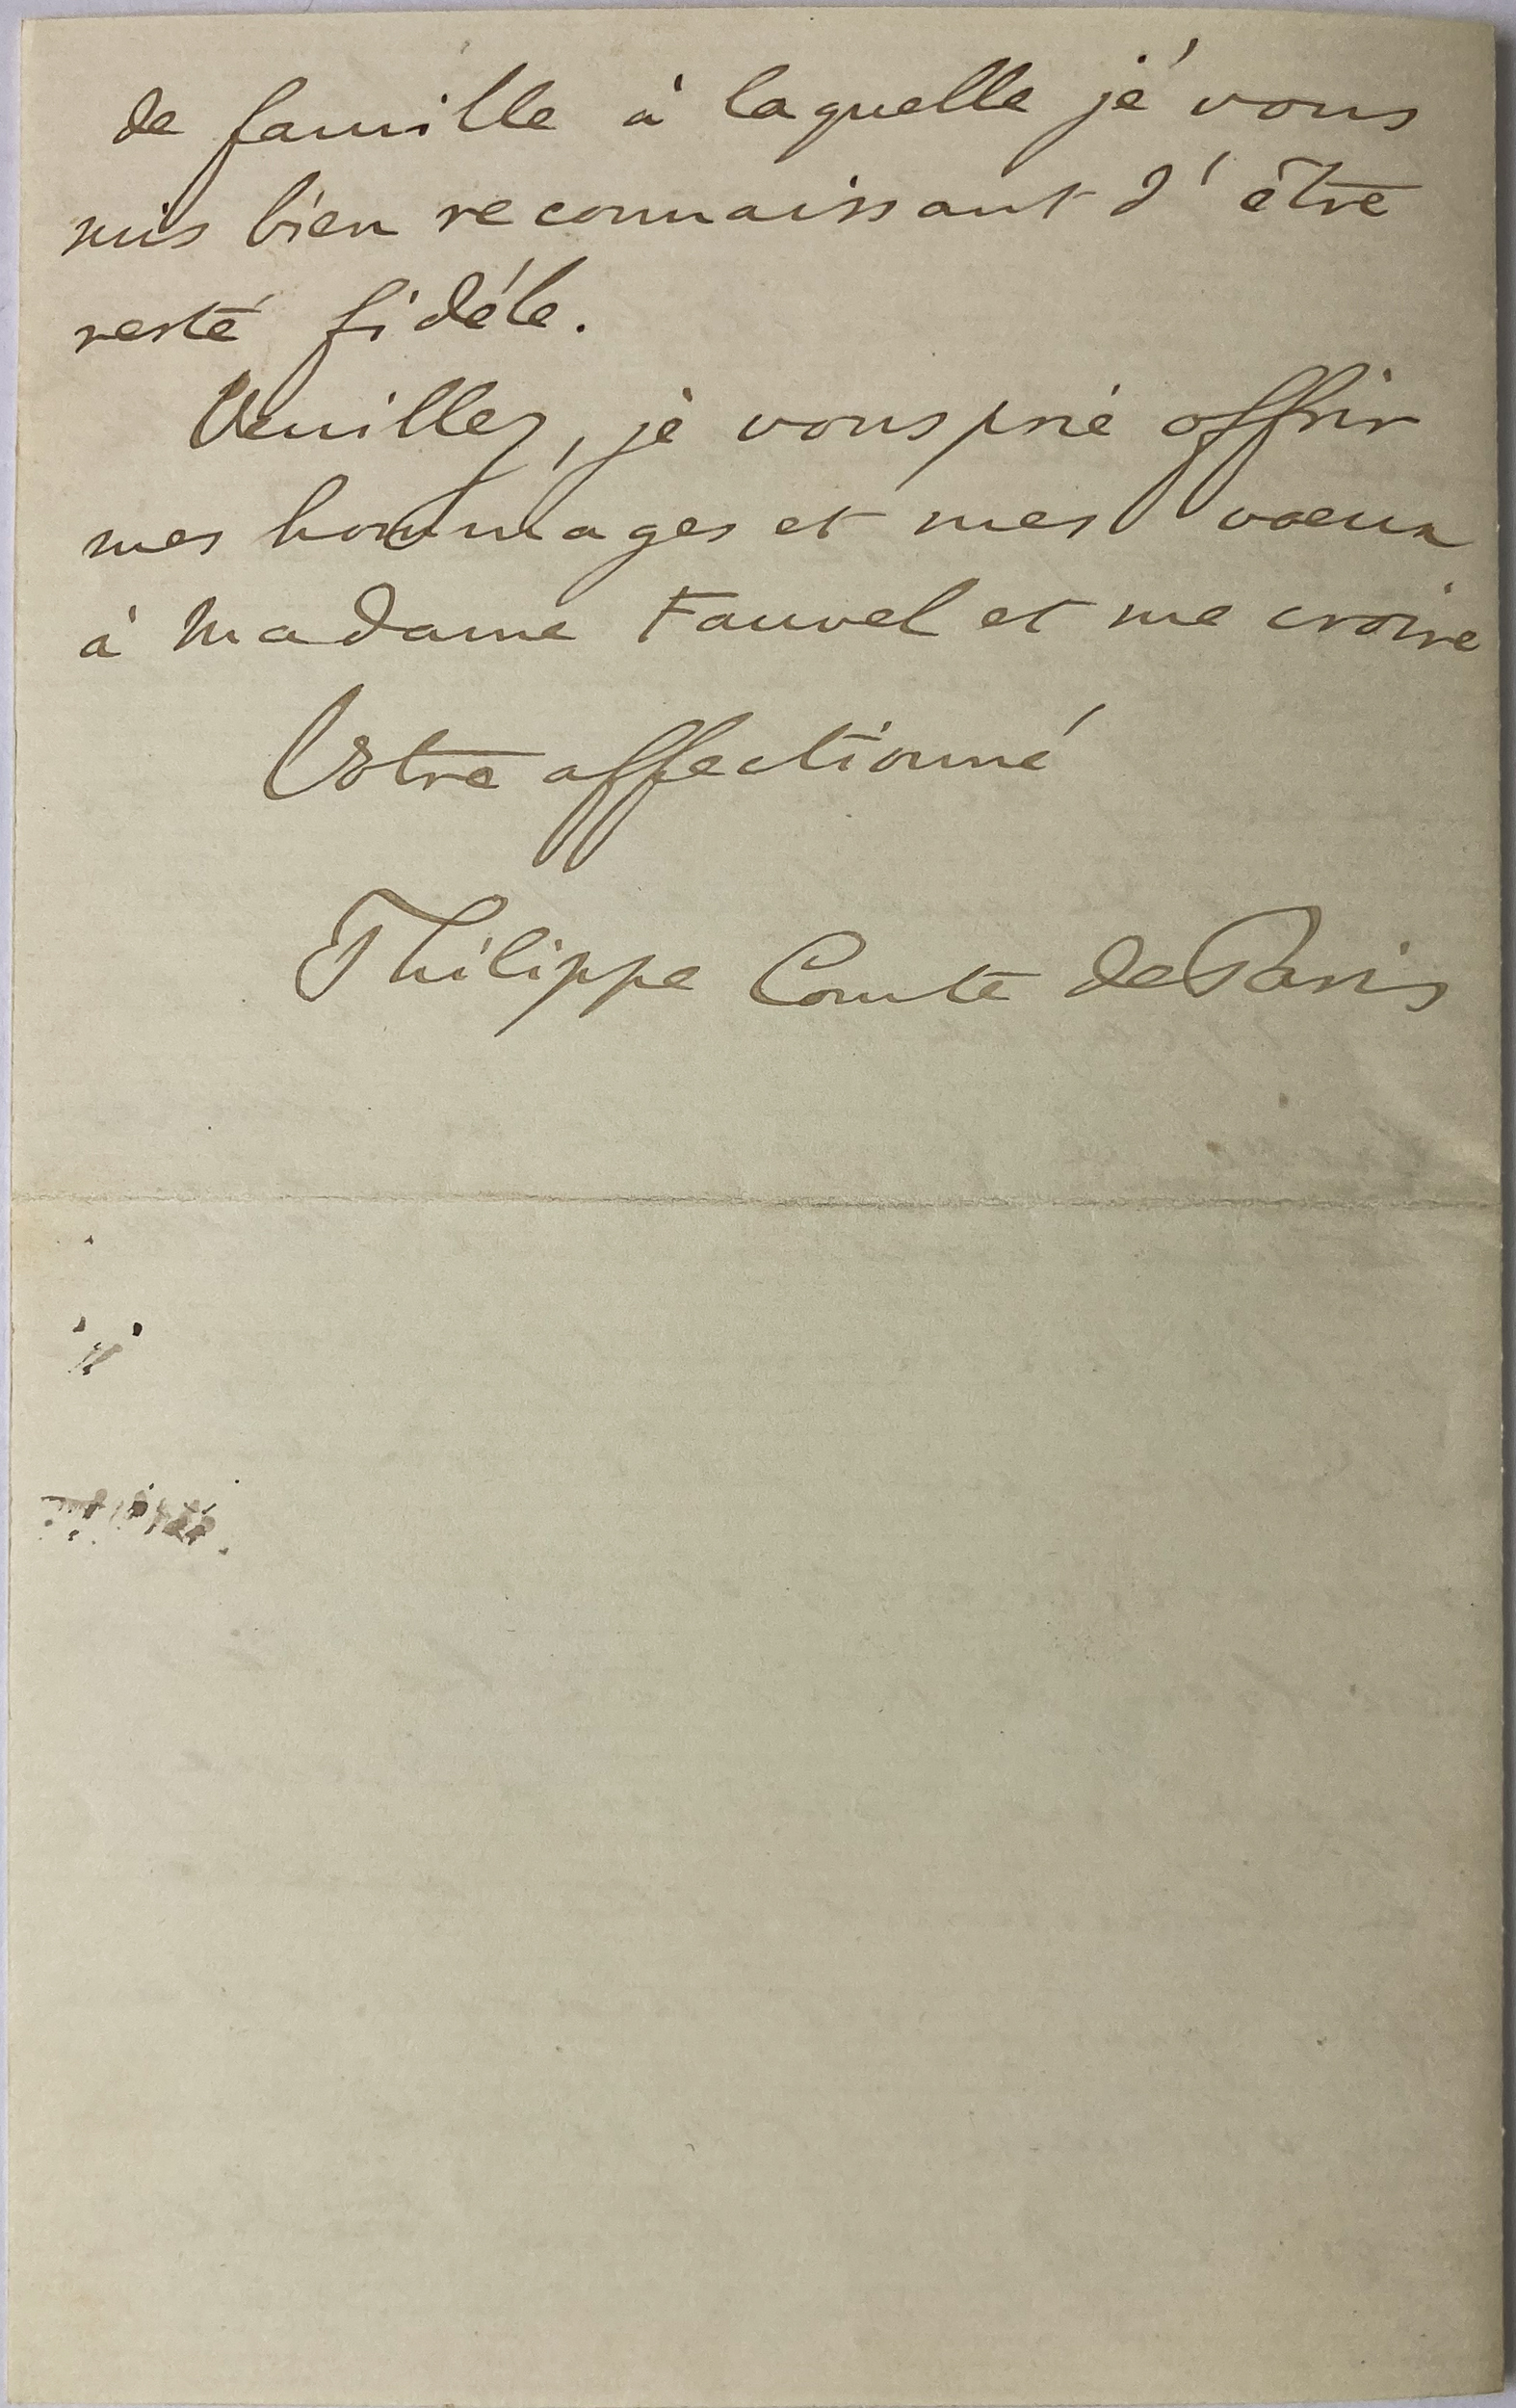 de famille à laquelle je vous
suis bien reconnaissant d'être
resté fidéle.
Veuillez, je vous prie offrir
mes hommages et mes voeux
à Madame Fauvel et me croire
Votre affectionné
Philippe Comte de Paris